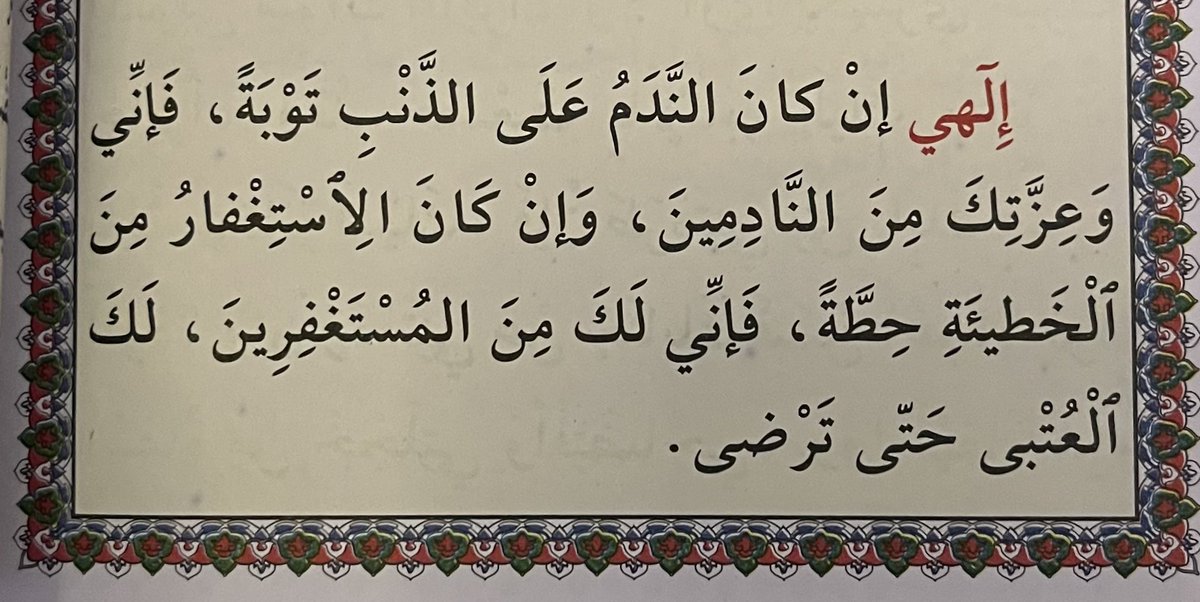 إِلٰهي إنْ كانَ النَّدَمُ عَلَى الذَّنْبِ تَوْبَةً، فَإنِّي
وَعِزَّتِكَ مِنَ النَّادِمِينَ، وَإنْ كَانَ الِٱسْتِغْفارُ مِنَ
ٱلْخَطيئَةِ حِطَّةً، فَإنِّي لَكَ مِنَ المُسْتَغْفِرِينَ، لَكَ
ٱلْعُتْبى حَتّى تَرْضى.